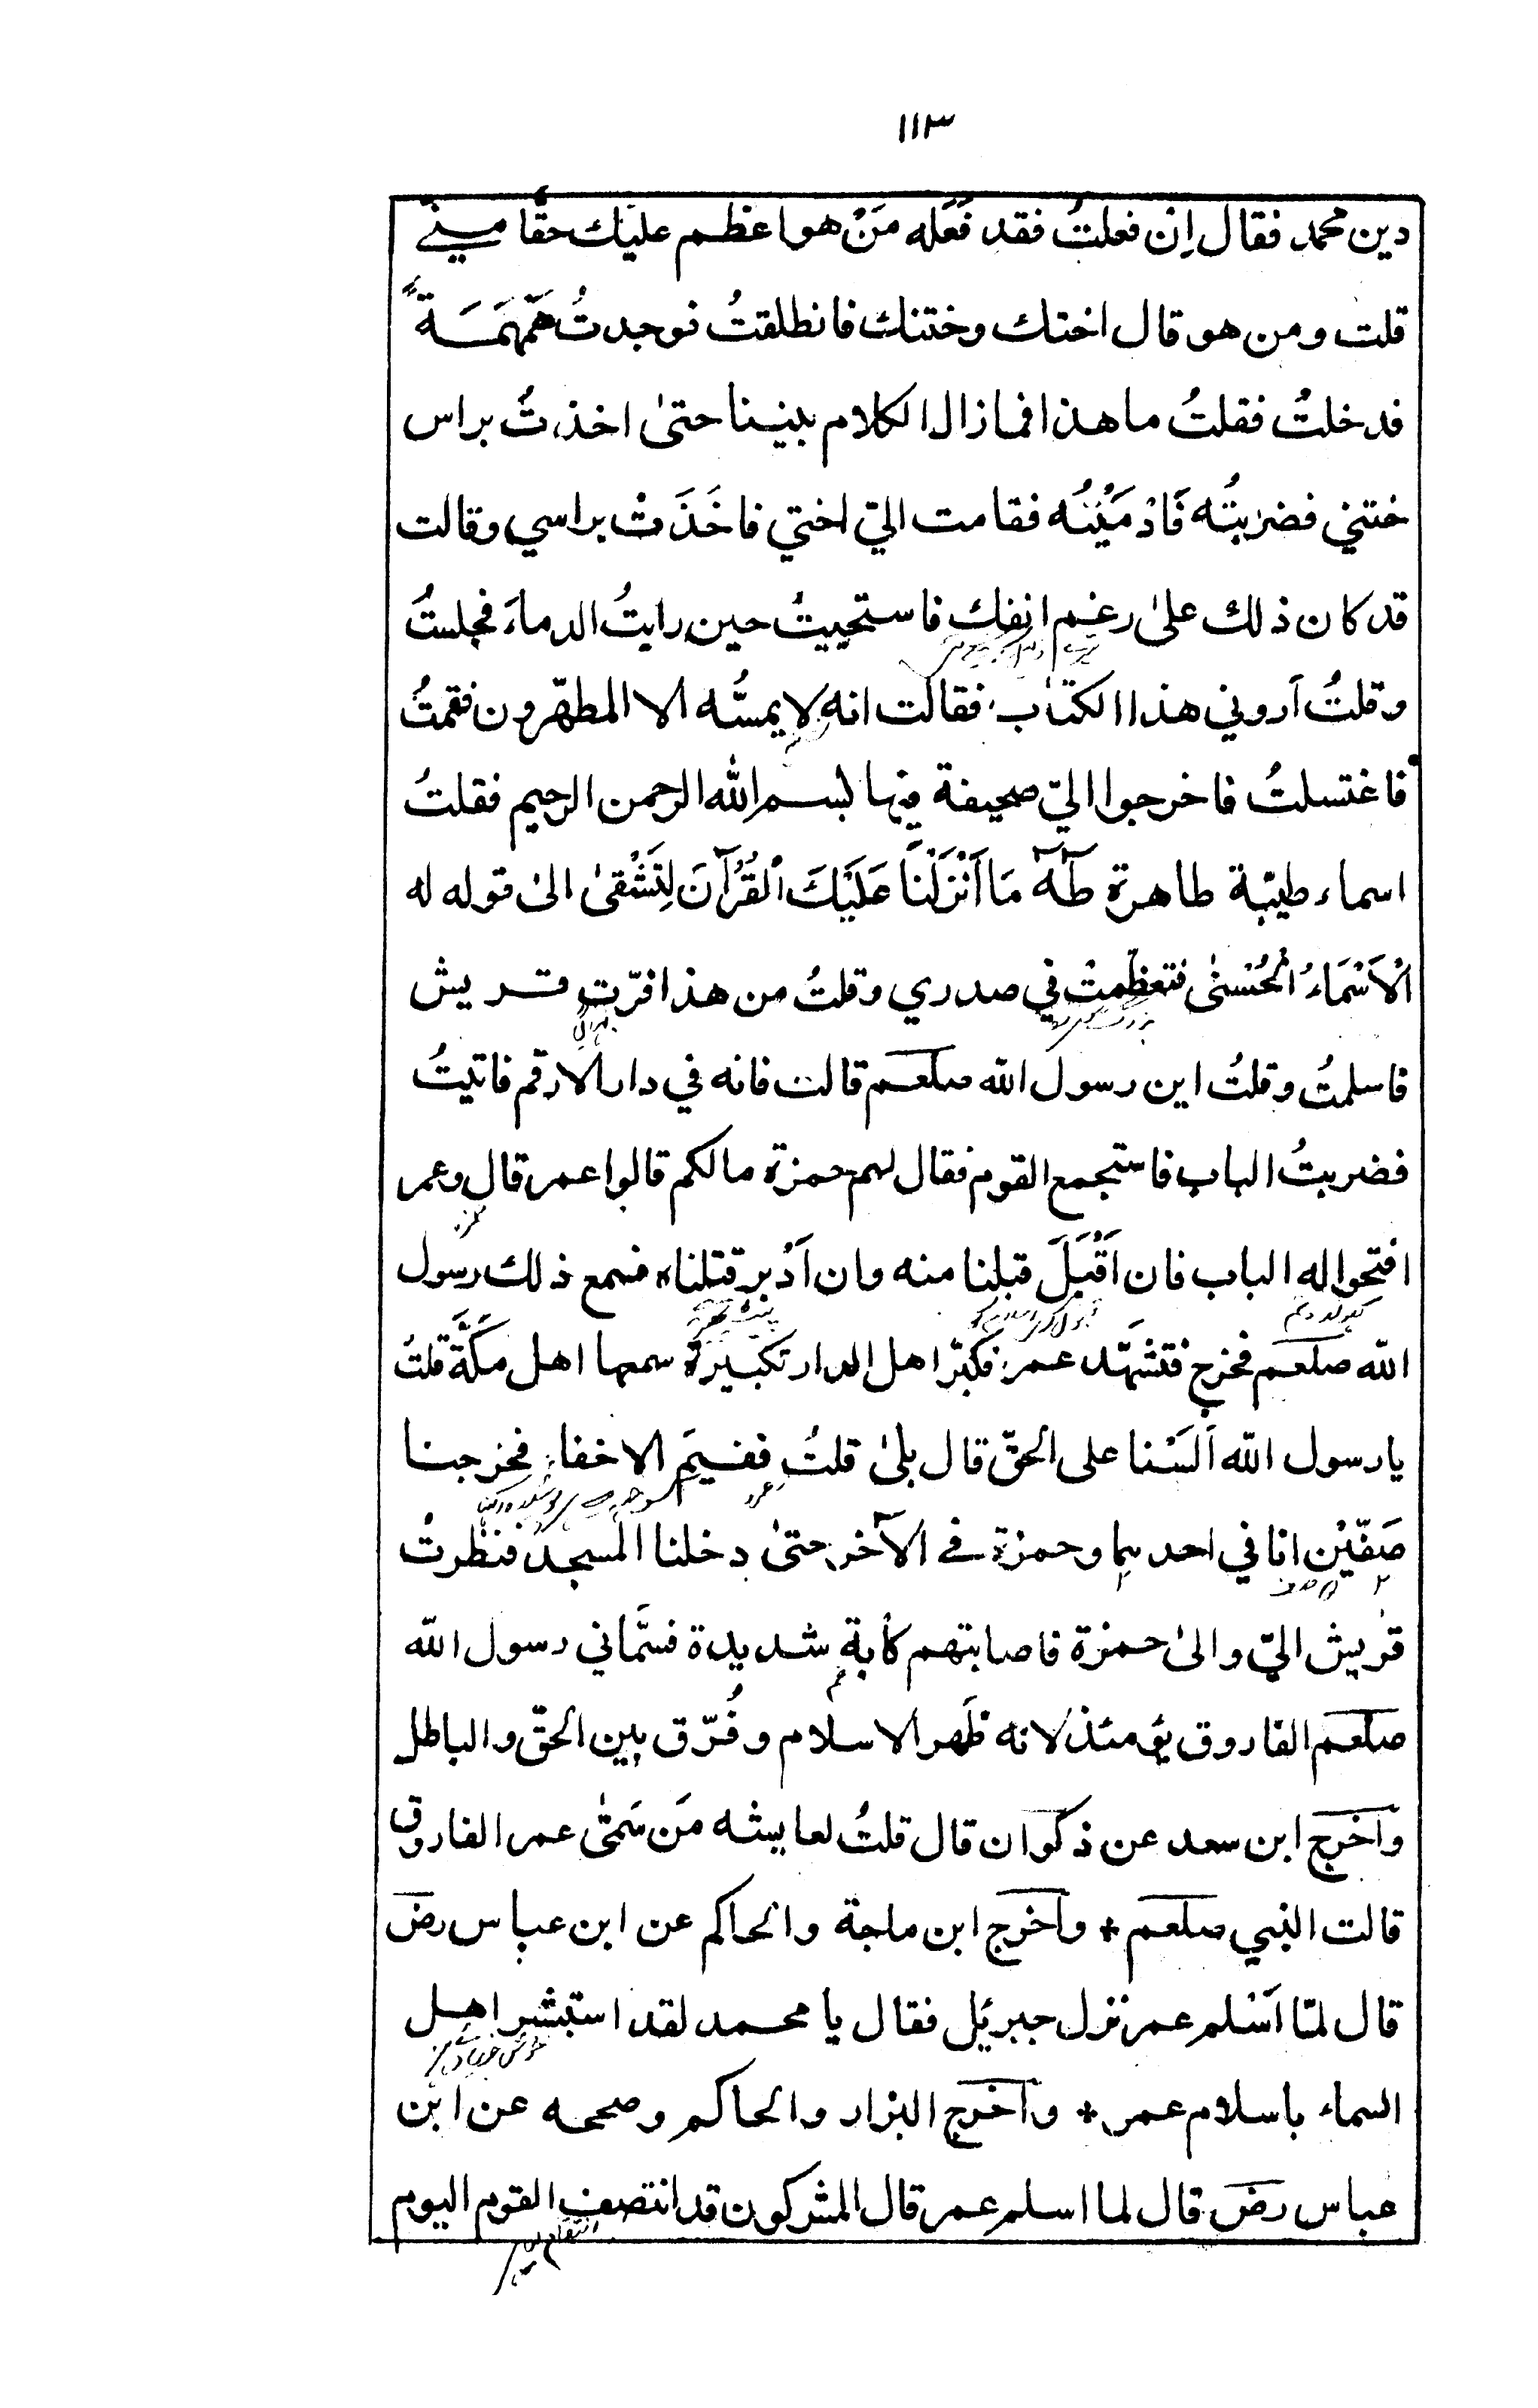 ١١٣
دين محمد فقال اِنْ فعلتُ فقد فَعَله مَنْ هو اعظم عليك حقًّا منّي
قلت ومن هو قال اختك وختنك فانطلقتُ فوجدتُ هَمْهَمَةً
فدخلتُ فقلتُ ما هذا فما زال الكلام بيننا حتىٰ اخذتُ براس
ختني فضربتُه فَاَدْمَيْتُه فقامت اليّ اختي فاخَذَتْ براسي وقالت
قد كان ذلك علىٰ رغم انفك فاستحييتُ حين رايتُ الدماءَ فجلستُ
وقلتُ اَروني هذا الكتاب فقالت انه لا يمسُّه الا المطهّرون فقمتُ
فاغتسلتُ فاخرجوا اليّ صحيفة فيها بسم الله الرحمن الرحيم فقلتُ
اسماء طيّبة طاهرة طٰهٰ مَا اَنْزَلْنَا عَلَيْكَ الْقُرْآنَ لِتَشْقىٰ الىٰ قوله له
الْاَسْمَاءُ الْحُسْنىٰ فتعظّمتْ في صدري وقلتُ من هذا فرّت قريش
فاسلمتُ وقلتُ اين رسول الله صلعم قالت فانه في دار الارقم فاتيتُ
فضربتُ الباب فاستجمع القوم فقال لهم حمزة مالكم قالوا عمر قال وعمر
افتحوا له الباب فان اَقْبَلَ قبلنا منه وان اَدْبر قتلناه فسمع ذلك رسول
الله صلعم فخرج فتشهّد عمر فكبّر اهل الدار تكبيرة سمعها اهل مَكَّةَ قلتُ
يا رسول الله اَلَسْنا على الحقّ قال بلىٰ قلتُ ففيمَ الاخفاء فخرجنا
صَفّيْن انا في احدهما وحمزة في الآخر حتىٰ دخلنا المسجد فنظرتْ
قريش اليّ والىٰ حمزة فاصابتهم كآبة شديدة فسمّاني رسول الله
صلعم الفاروق يومئذ لانه ظَهر الاسلام وفُرّق بين الحقّ والباطل
واخرج ابن سعد عن ذكوان قال قلتُ لعايشه مَن سَمّىٰ عمر الفاروق
قالت النبي صلعم + واخرج ابن ماجة والحاكم عن ابن عباس رض
قال لمّا اَسْلم عمر نزل جبرئيل فقال يا محمد لقد استبشر اهل
السماء باسلام عمر + واخرج البزار والحاكم وصححه عن ابن
عباس رض قال لما اسلم عمر قال المشركون قد انتصف القوم اليوم